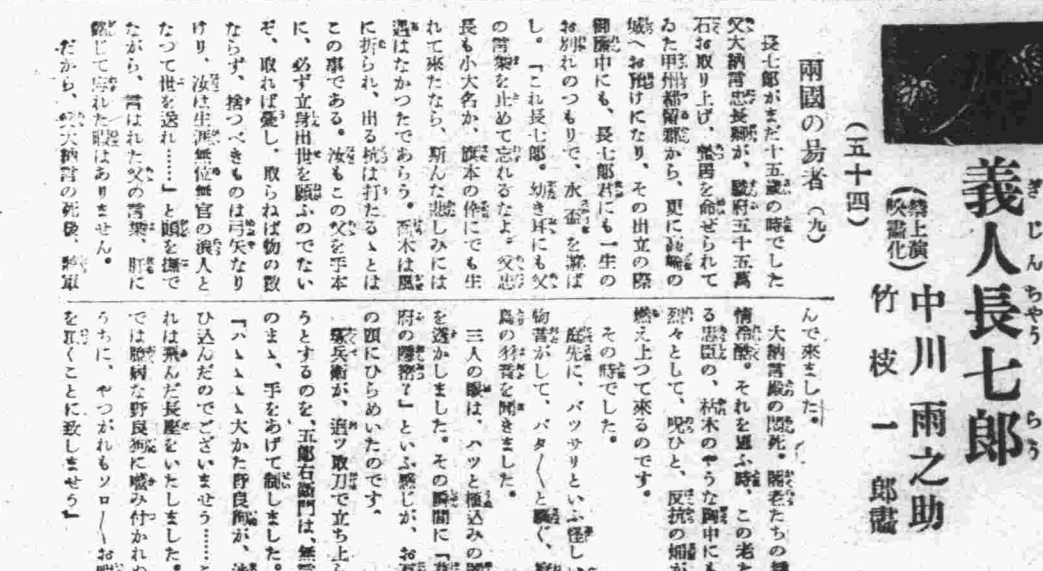 義人長七郎
ぎじんちやうらう
(禁上演
映畵化)
中川雨之助
竹枝一郎畵
(五十四)
兩國の易者(九)
長七郎がまだ十五歳の時でした
父大納言忠長卿が、駿府五十五萬
石お取り上げ、蟄居を命ぜられて
ゐた甲州都留郡から、更に高崎の
城へお預けになり、その出立の際
御籠中にも、長七郎君にも一生の
お別れのつもりで、水盃を濟ば
し。「これ長七郎。幼き耳にも父
の言葉を止めて忘れるなよ。父忠
長も小大名か、旗本の伜にでも生
れて來たなら、斯んな悲しみには
遇はなかつたであらう。喬木は風
に折られ、出る杭は打たるゝとは
この事である。汝もこの父を手本
に、必ず立身出世を願ふのでない
ぞ、取れば憂し、取らねば物の數
ならず、捨つべきものは弓矢なり
けり、汝は生涯無位無官の浪人と
なつて世を送れ……」と頭を撫で
ながら、言はれた父の言葉、肝に
銘じて忘れた暇はありません。
だから、大納言の死後、將軍
んで來ました。
大納言殿の悶死。閣老たちの
情冷酷。それを思ふ時、この老
る忠臣の、枯木のやうな胸中に
烈々として、呪ひと、反抗の焔が
燃え上つて來るのです。
その時でした。
庭先に、バツサリといふ怪しい
物音がして、バタ〱と騷ぐ、
鳥の羽音を聞きました。
三人の眼は、ハツと植込みの
を透かしました。その瞬間に「
府の隱密?」といふ感じが、お
の頭にひらめいたのです。
兵衞が、追ッ取刀で立ち上ら
うとするのを、五郎右衞門は、無言
のまゝ、手をあげて制しました。
「ハヽヽヽ大かた野良狗が、
ひ込んだのでございませう……
れは飛んだ長座をいたしました。
では臆病な野良狗に噛み付かれぬ
うちに、やつがれもソロ〱お
を頂くことに致しませう」